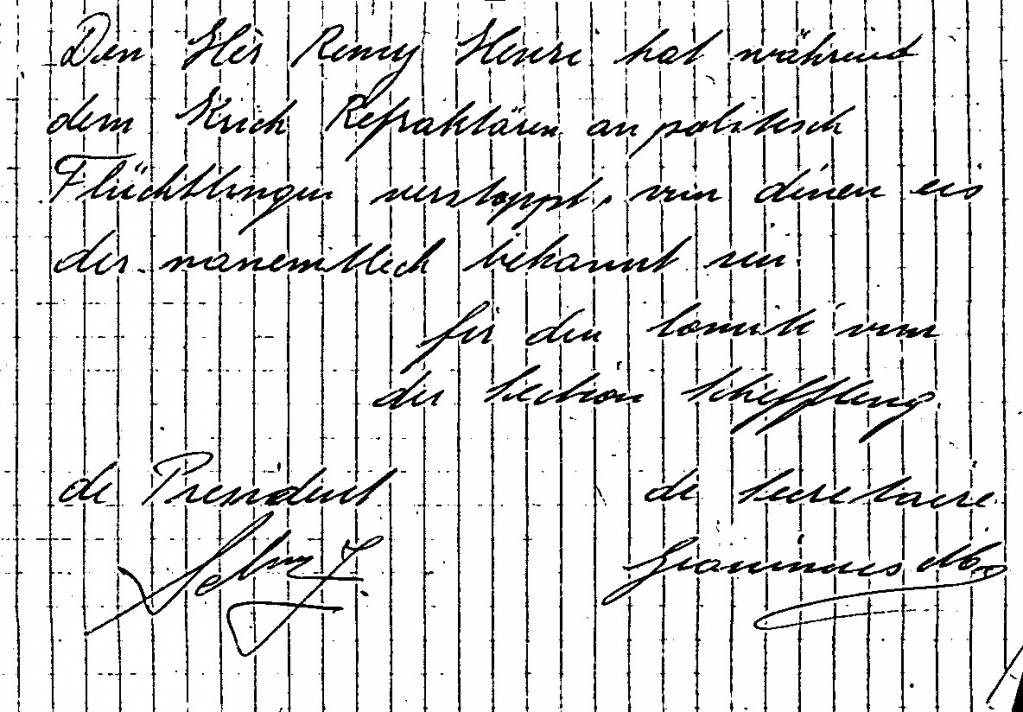 Den Hèr Remy Henri hat während
dem Krich Refraktären an politisch
Flüchtlingen verstoppt, vun dénen eis
der nanemtlech bekannt sin.
fir den Comité vun
der Section Scheffleng.
de President de Secretaire
J.